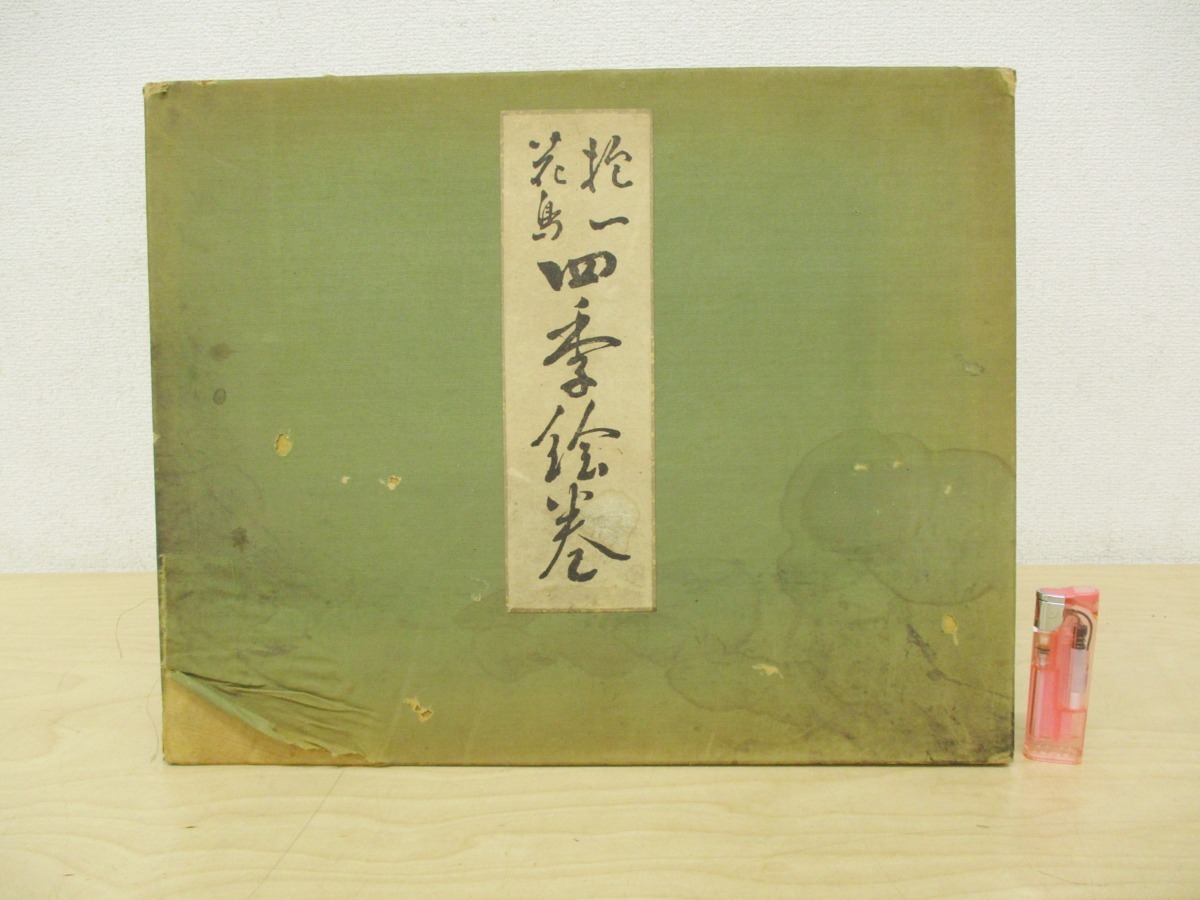 抱一
花鳥
四季絵巻